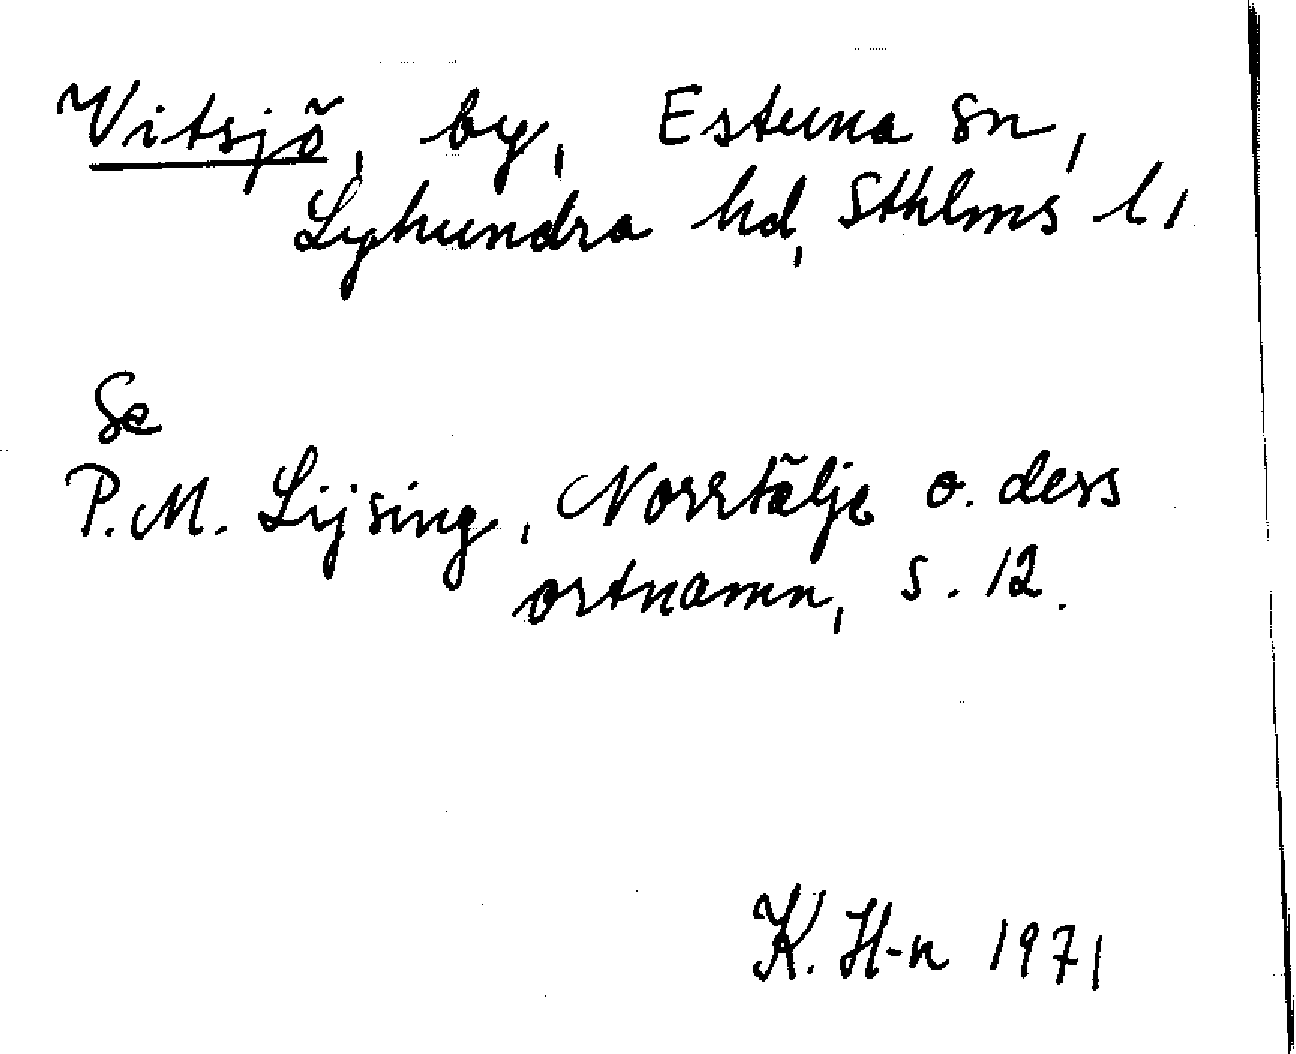 Vitsjö, by, Estuna sn,
Lyhundra hd, Sthlms l,
Se
P.M. Lijsing, Norrtälje o. dess
ortnamn, s. 12.
K. H-n 1971